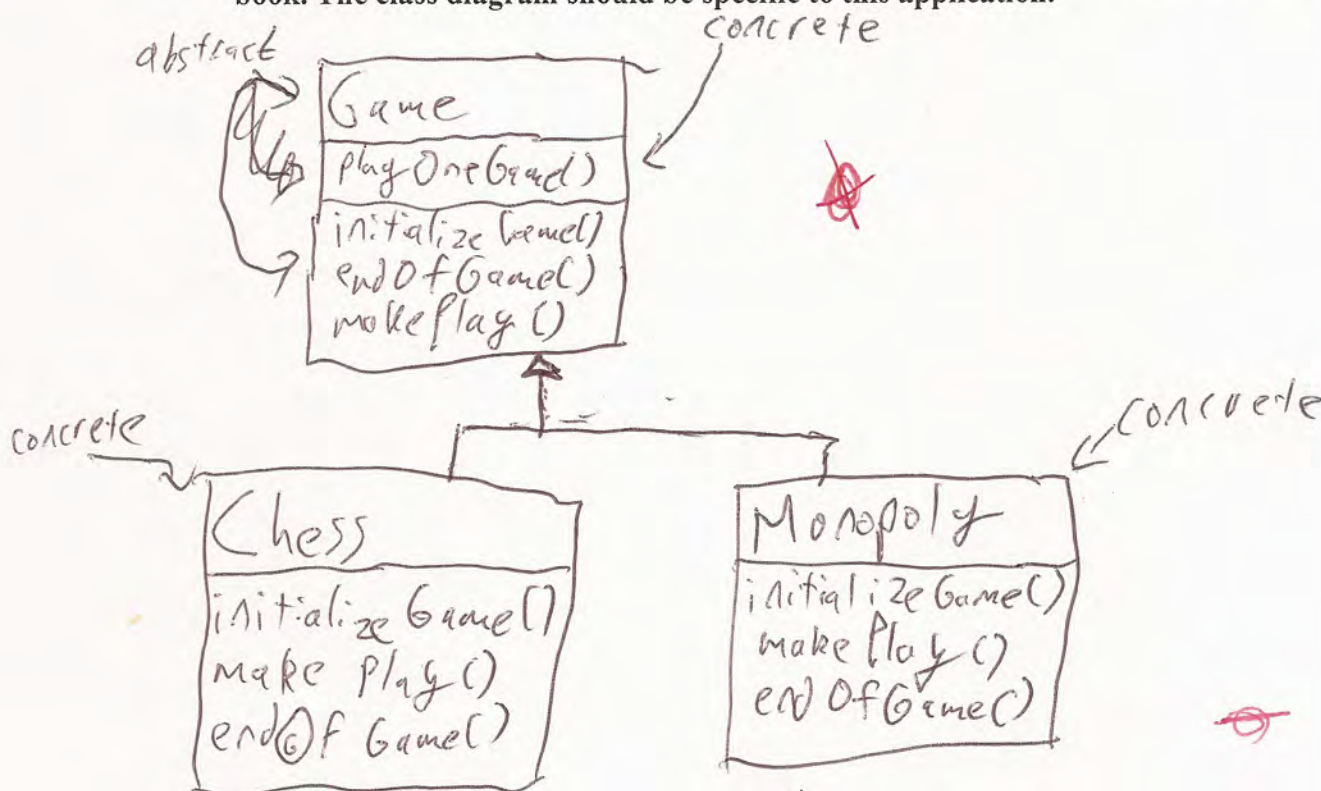 book. The class diagram should be specific to this application.
concrete
abstract
Game
playOneGame()
initializeGame()
endOfGame()
makePlay()
concrete
concrete
Chess
initializeGame()
make Play()
endOf Game()
Monopoly
initializeGame()
makePlay()
endOfGame()